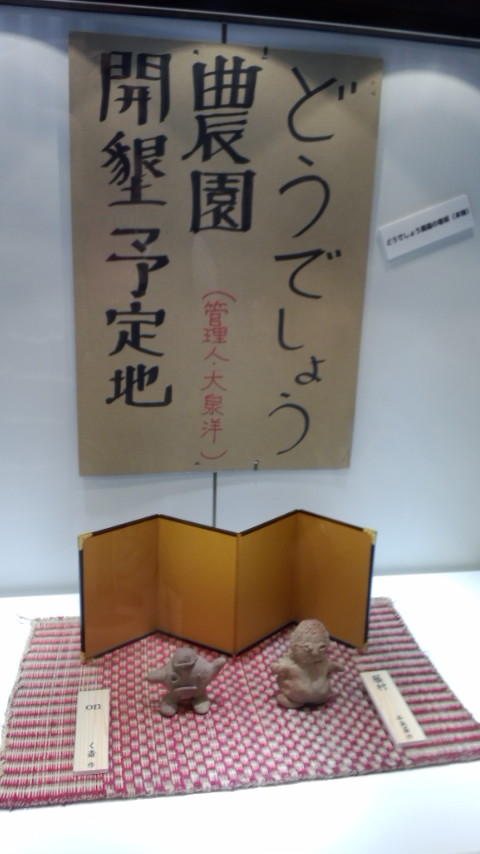 どうでしょう
農園
（管理人・大泉洋）
開墾予定地
どうでしょう農園の看板（実物）
on
く斎 作